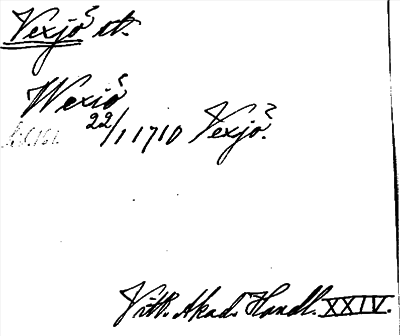 Vexjö st.
Wexiö
22/1 1710 Vexjö.
Vitt. Akad. Handl. XXIV.